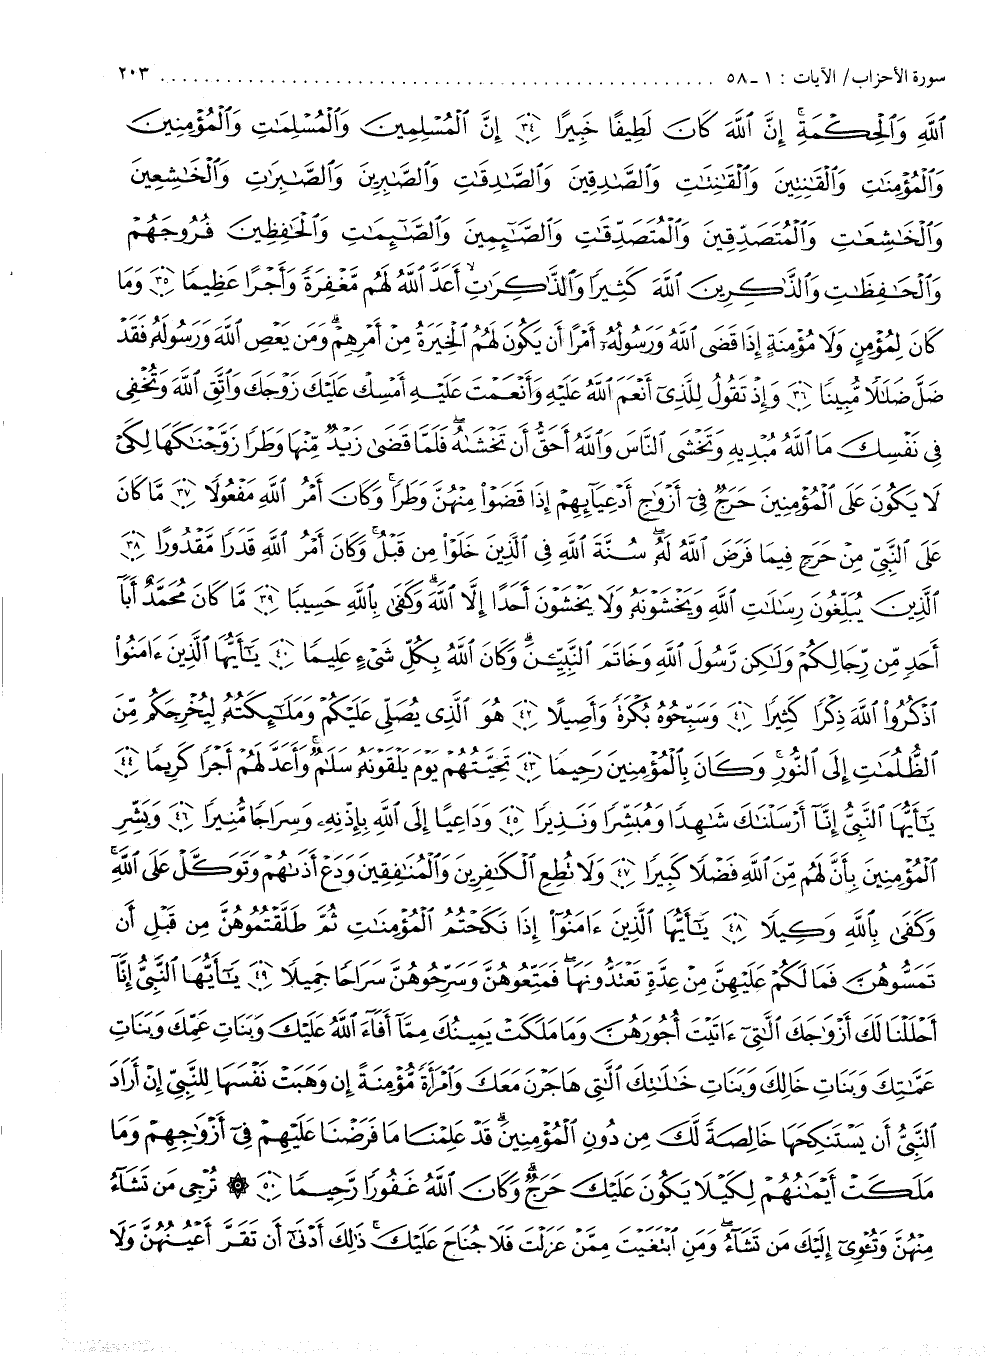 سورة الأحزاب/ الآيات : ١ ـ ٥٨ ........................................................ ٢٠٣
ٱللَّهِ وَٱلْحِكْمَةِ ۚ إِنَّ ٱللَّهَ كَانَ لَطِيفًا خَبِيرًا ﴿٣٤﴾ إِنَّ ٱلْمُسْلِمِينَ وَٱلْمُسْلِمَٰتِ وَٱلْمُؤْمِنِينَ
وَٱلْمُؤْمِنَٰتِ وَٱلْقَٰنِتِينَ وَٱلْقَٰنِتَٰتِ وَٱلصَّٰدِقِينَ وَٱلصَّٰدِقَٰتِ وَٱلصَّٰبِرِينَ وَٱلصَّٰبِرَٰتِ وَٱلْخَٰشِعِينَ
وَٱلْخَٰشِعَٰتِ وَٱلْمُتَصَدِّقِينَ وَٱلْمُتَصَدِّقَٰتِ وَٱلصَّٰٓئِمِينَ وَٱلصَّٰٓئِمَٰتِ وَٱلْحَٰفِظِينَ فُرُوجَهُمْ
وَٱلْحَٰفِظَٰتِ وَٱلذَّٰكِرِينَ ٱللَّهَ كَثِيرًا وَٱلذَّٰكِرَٰتِ ۙ أَعَدَّ ٱللَّهُ لَهُم مَّغْفِرَةً وَأَجْرًا عَظِيمًا ﴿٣٥﴾ وَمَا
كَانَ لِمُؤْمِنٍ وَلَا مُؤْمِنَةٍ إِذَا قَضَى ٱللَّهُ وَرَسُولُهُۥٓ أَمْرًا أَن يَكُونَ لَهُمُ ٱلْخِيَرَةُ مِنْ أَمْرِهِمْ ۗ وَمَن يَعْصِ ٱللَّهَ وَرَسُولَهُۥ فَقَدْ
ضَلَّ ضَلَٰلًا مُّبِينًا ﴿٣٦﴾ وَإِذْ تَقُولُ لِلَّذِىٓ أَنْعَمَ ٱللَّهُ عَلَيْهِ وَأَنْعَمْتَ عَلَيْهِ أَمْسِكْ عَلَيْكَ زَوْجَكَ وَٱتَّقِ ٱللَّهَ وَتُخْفِى
فِى نَفْسِكَ مَا ٱللَّهُ مُبْدِيهِ وَتَخْشَى ٱلنَّاسَ وَٱللَّهُ أَحَقُّ أَن تَخْشَىٰهُ ۖ فَلَمَّا قَضَىٰ زَيْدٌ مِّنْهَا وَطَرًا زَوَّجْنَٰكَهَا لِكَىْ
لَا يَكُونَ عَلَى ٱلْمُؤْمِنِينَ حَرَجٌ فِىٓ أَزْوَٰجِ أَدْعِيَآئِهِمْ إِذَا قَضَوْا۟ مِنْهُنَّ وَطَرًا ۚ وَكَانَ أَمْرُ ٱللَّهِ مَفْعُولًا ﴿٣٧﴾ مَّا كَانَ
عَلَى ٱلنَّبِىِّ مِنْ حَرَجٍ فِيمَا فَرَضَ ٱللَّهُ لَهُۥ ۖ سُنَّةَ ٱللَّهِ فِى ٱلَّذِينَ خَلَوْا۟ مِن قَبْلُ ۚ وَكَانَ أَمْرُ ٱللَّهِ قَدَرًا مَّقْدُورًا ﴿٣٨﴾
ٱلَّذِينَ يُبَلِّغُونَ رِسَٰلَٰتِ ٱللَّهِ وَيَخْشَوْنَهُۥ وَلَا يَخْشَوْنَ أَحَدًا إِلَّا ٱللَّهَ ۗ وَكَفَىٰ بِٱللَّهِ حَسِيبًا ﴿٣٩﴾ مَّا كَانَ مُحَمَّدٌ أَبَآ
أَحَدٍ مِّن رِّجَالِكُمْ وَلَٰكِن رَّسُولَ ٱللَّهِ وَخَاتَمَ ٱلنَّبِيِّۦنَ ۗ وَكَانَ ٱللَّهُ بِكُلِّ شَىْءٍ عَلِيمًا ﴿٤٠﴾ يَٰٓأَيُّهَا ٱلَّذِينَ ءَامَنُوا۟
ٱذْكُرُوا۟ ٱللَّهَ ذِكْرًا كَثِيرًا ﴿٤١﴾ وَسَبِّحُوهُ بُكْرَةً وَأَصِيلًا ﴿٤٢﴾ هُوَ ٱلَّذِى يُصَلِّى عَلَيْكُمْ وَمَلَٰٓئِكَتُهُۥ لِيُخْرِجَكُم مِّنَ
ٱلظُّلُمَٰتِ إِلَى ٱلنُّورِ ۚ وَكَانَ بِٱلْمُؤْمِنِينَ رَحِيمًا ﴿٤٣﴾ تَحِيَّتُهُمْ يَوْمَ يَلْقَوْنَهُۥ سَلَٰمٌ ۚ وَأَعَدَّ لَهُمْ أَجْرًا كَرِيمًا ﴿٤٤﴾
يَٰٓأَيُّهَا ٱلنَّبِىُّ إِنَّآ أَرْسَلْنَٰكَ شَٰهِدًا وَمُبَشِّرًا وَنَذِيرًا ﴿٤٥﴾ وَدَاعِيًا إِلَى ٱللَّهِ بِإِذْنِهِۦ وَسِرَاجًا مُّنِيرًا ﴿٤٦﴾ وَبَشِّرِ
ٱلْمُؤْمِنِينَ بِأَنَّ لَهُم مِّنَ ٱللَّهِ فَضْلًا كَبِيرًا ﴿٤٧﴾ وَلَا تُطِعِ ٱلْكَٰفِرِينَ وَٱلْمُنَٰفِقِينَ وَدَعْ أَذَىٰهُمْ وَتَوَكَّلْ عَلَى ٱللَّهِ ۚ
وَكَفَىٰ بِٱللَّهِ وَكِيلًا ﴿٤٨﴾ يَٰٓأَيُّهَا ٱلَّذِينَ ءَامَنُوٓا۟ إِذَا نَكَحْتُمُ ٱلْمُؤْمِنَٰتِ ثُمَّ طَلَّقْتُمُوهُنَّ مِن قَبْلِ أَن
تَمَسُّوهُنَّ فَمَا لَكُمْ عَلَيْهِنَّ مِنْ عِدَّةٍ تَعْتَدُّونَهَا ۖ فَمَتِّعُوهُنَّ وَسَرِّحُوهُنَّ سَرَاحًا جَمِيلًا ﴿٤٩﴾ يَٰٓأَيُّهَا ٱلنَّبِىُّ إِنَّآ
أَحْلَلْنَا لَكَ أَزْوَٰجَكَ ٱلَّٰتِىٓ ءَاتَيْتَ أُجُورَهُنَّ وَمَا مَلَكَتْ يَمِينُكَ مِمَّآ أَفَآءَ ٱللَّهُ عَلَيْكَ وَبَنَاتِ عَمِّكَ وَبَنَاتِ
عَمَّٰتِكَ وَبَنَاتِ خَالِكَ وَبَنَاتِ خَٰلَٰتِكَ ٱلَّٰتِى هَاجَرْنَ مَعَكَ وَٱمْرَأَةً مُّؤْمِنَةً إِن وَهَبَتْ نَفْسَهَا لِلنَّبِىِّ إِنْ أَرَادَ
ٱلنَّبِىُّ أَن يَسْتَنكِحَهَا خَالِصَةً لَّكَ مِن دُونِ ٱلْمُؤْمِنِينَ ۗ قَدْ عَلِمْنَا مَا فَرَضْنَا عَلَيْهِمْ فِىٓ أَزْوَٰجِهِمْ وَمَا
مَلَكَتْ أَيْمَٰنُهُمْ لِكَيْلَا يَكُونَ عَلَيْكَ حَرَجٌ ۗ وَكَانَ ٱللَّهُ غَفُورًا رَّحِيمًا ﴿٥٠﴾ ۞ تُرْجِى مَن تَشَآءُ
مِنْهُنَّ وَتُـْٔوِىٓ إِلَيْكَ مَن تَشَآءُ ۖ وَمَنِ ٱبْتَغَيْتَ مِمَّنْ عَزَلْتَ فَلَا جُنَاحَ عَلَيْكَ ۚ ذَٰلِكَ أَدْنَىٰٓ أَن تَقَرَّ أَعْيُنُهُنَّ وَلَا